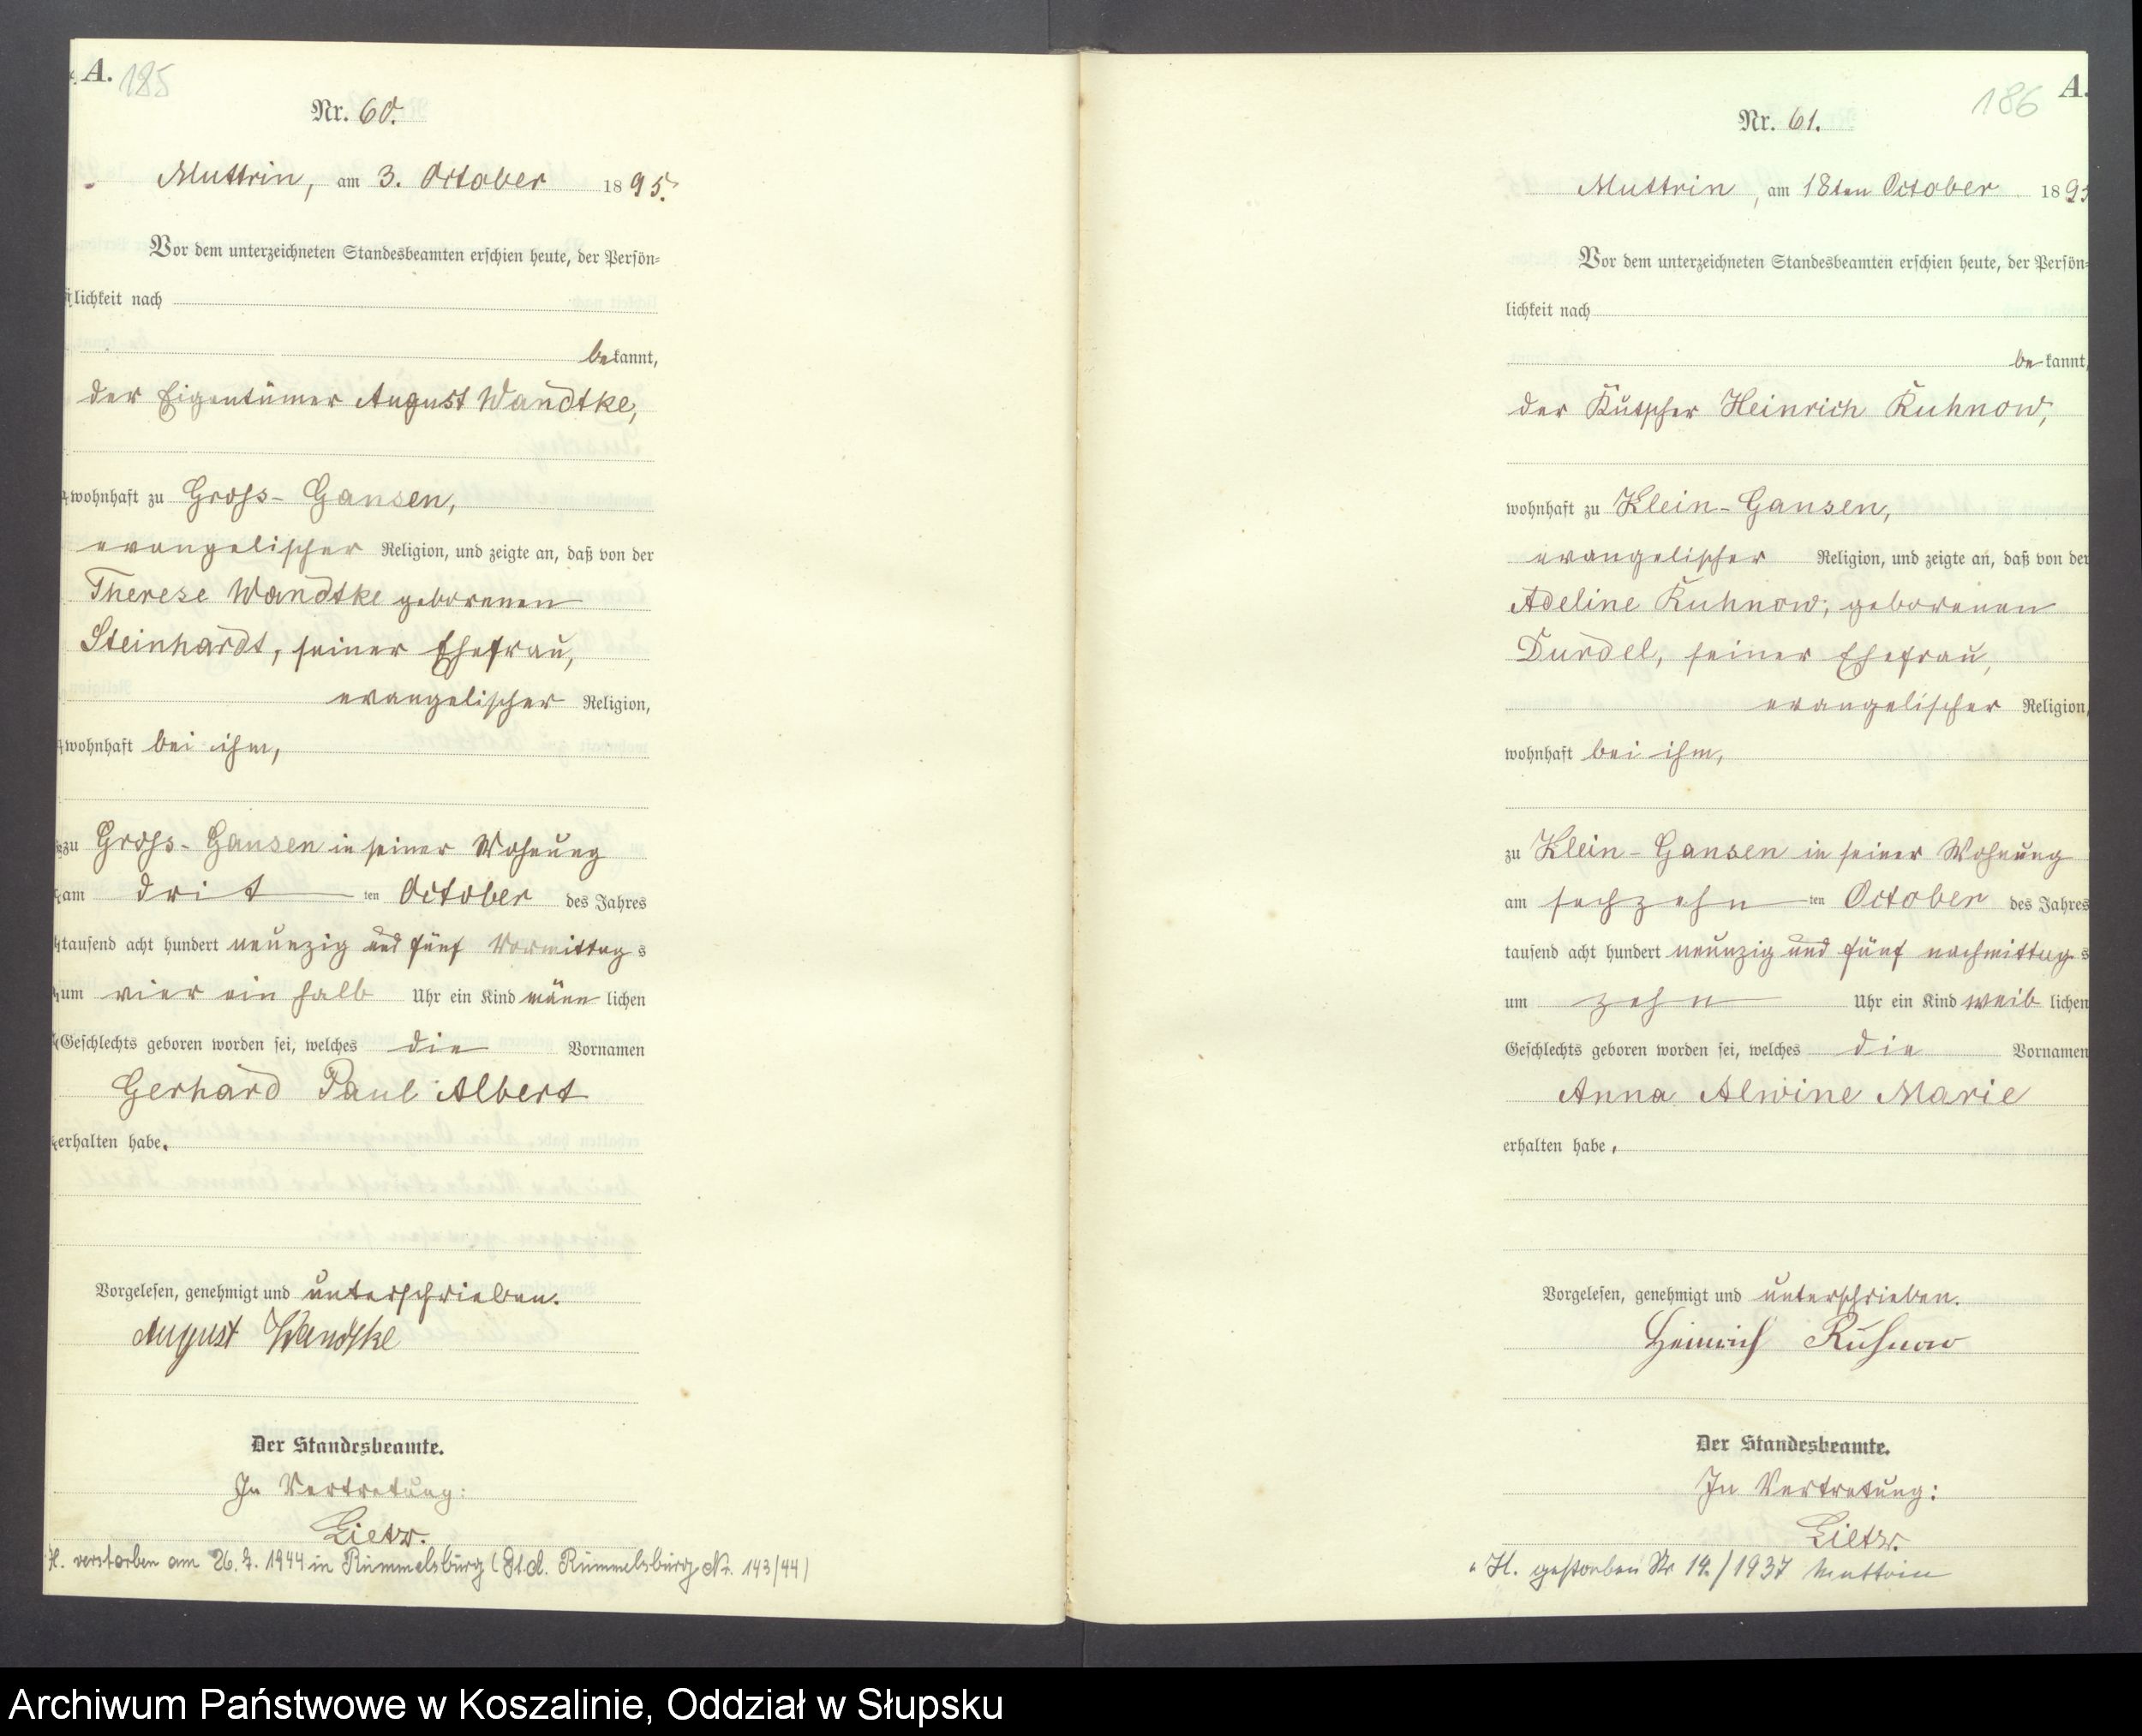 A. 185
Nr. 60.
Muttrin, am 3. October 1895.
Vor dem unterzeichneten Standesbeamten erschien heute, der Persön-
lichkeit nach
bekannt,
der Eigentümer August Wandtke,
wohnhaft zu Gross-Gansen,
evangelischer Religion, und zeigte an, daß von der
Therese Wandtke geborenen
Steinhardt, seiner Ehefrau,
evangelischer Religion,
wohnhaft bei ihm,
zu Gross-Gansen in seiner Wohnung
am dritten October des Jahres
tausend acht hundert neunzig und fünf Vormittags
um vier ein halb Uhr ein Kind männlichen
Geschlechts geboren worden sei, welches die Vornamen
Gerhard Paul Albert
erhalten habe.
Vorgelesen, genehmigt und unterschrieben.
August Wandtke
Der Standesbeamte.
In Vertretung:
Lietz.
H. verstorben am 26. 7. 1944 in Rummelsburg (St.A. Rummelsburg Nr. 143/44)
186 A.
Nr. 61.
Muttrin, am 18ten October 1895
Vor dem unterzeichneten Standesbeamten erschien heute, der Persön-
lichkeit nach
bekannt,
der Kutscher Heinrich Kuhnow,
wohnhaft zu Klein-Gansen,
evangelischer Religion, und zeigte an, daß von der
Adeline Kuhnow, geborenen
Durdel, seiner Ehefrau,
evangelischer Religion,
wohnhaft bei ihm,
zu Klein-Gansen in seiner Wohnung
am sechzehnten October des Jahres
tausend acht hundert neunzig und fünf nachmittags
um zehn Uhr ein Kind weiblichen
Geschlechts geboren worden sei, welches die Vornamen
Anna Alwine Marie
erhalten habe.
Vorgelesen, genehmigt und unterschrieben.
Heinrich Kuhnow
Der Standesbeamte.
In Vertretung:
Lietz.
H. gestorben Nr 14./1937 Muttrin
Archiwum Państwowe w Koszalinie, Oddział w Słupsku